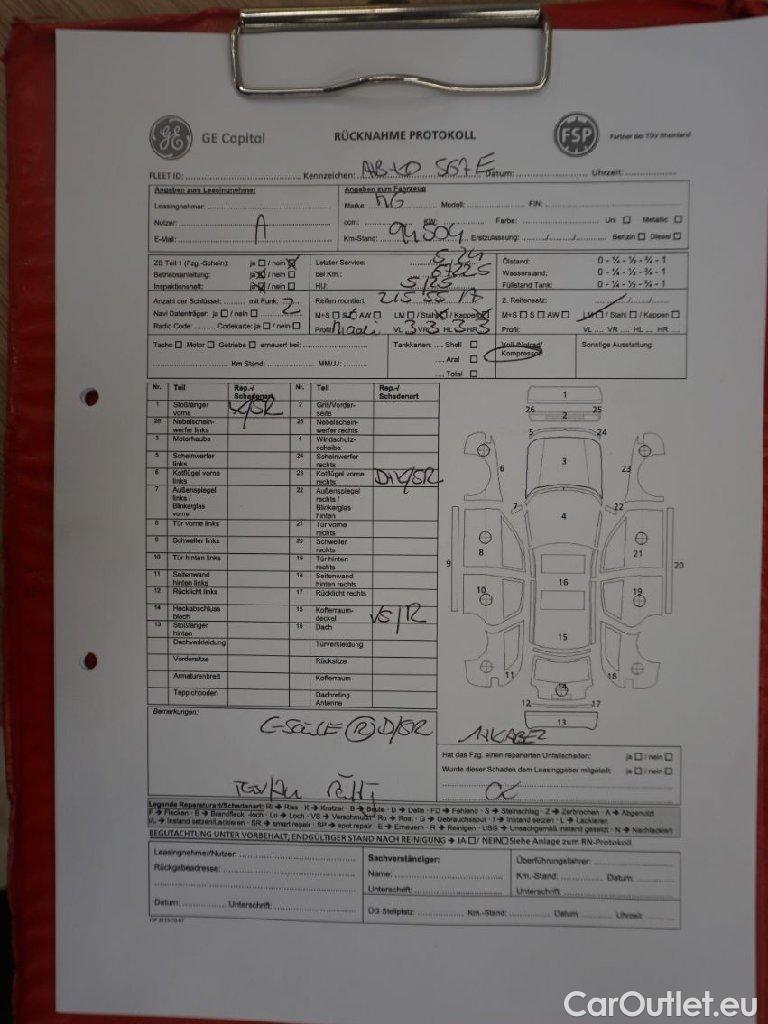 GE Capital
RÜCKNAHME PROTOKOLL
FSP
Partner des TÜV Rheinland
FLEET ID: Kennzeichen: Datum: Uhrzeit:
Angaben zum Leasingnehmer:
Angaben zum Fahrzeug
Leasingnehmer:
Marke MG Modell: FIN:
Nutzer: A
ccm: KW: Farbe: Uni Metallic
E-Mail:
Km-Stand: 94504 Erstzulassung: Benzin Diesel
ZB Teil 1 (Fzg.-Schein): ja / nein
Letzter Service: 5.24
Ölstand: 0 - ¼ - ½ - ¾ - 1
Betriebsanleitung: ja / nein
bei Km: 67225
Wasserstand: 0 - ¼ - ½ - ¾ - 1
Inspektionsheft: ja / nein
HU: 5/25
Füllstand Tank: 0 - ¼ - ½ - ¾ - 1
Anzahl der Schlüssel: mit Funk: 2
Reifen montiert: 215 55 17
2. Reifensatz:
Navi Datenträger: ja / nein
M+S S AW LM / Stahl / Kappen
M+S S AW LM / Stahl / Kappen
Radio Code: Codekarte: ja / nein
Profil: VL 3 VR 3 HL 3 HR 3
Profil: VL HR
Tacho Motor Getriebe erneuert bei:
Km Stand: MM/JJ:
Tankkarten: Shell
Aral
Total
Voll-/Notrad/
Kompressor
Sonstige Ausstattung:
Nr. Teil Rep.-/ Schadenart Nr. Teil Rep.-/ Schadenart
1 Stoßfänger vorne K/SR 2 Grill/Vorderseite
26 Nebelscheinwerfer links 25 Nebelscheinwerfer rechts
3 Motorhaube 4 Windschutzscheibe
5 Scheinwerfer links 24 Scheinwerfer rechts
6 Kotflügel vorne links 23 Kotflügel vorne rechts
7 Außenspiegel links / Blinkerglas vorne 22 Außenspiegel rechts / Blinkerglas hinten
8 Tür vorne links 21 Tür vorne rechts
9 Schweller links 20 Schweller rechts
10 Tür hinten links 19 Tür hinten rechts
11 Seitenwand hinten links 18 Seitenwand hinten rechts
12 Rücklicht links 17 Rücklicht rechts
14 Heckabschlussblech 15 Kofferraumdeckel VS/R
13 Stoßfänger hinten 16 Dach
Dachverkleidung Türverkleidung
Vordersitze Rücksitze
Armaturenbrett Kofferraum
Teppichboden Dachreling Antenne
1
26 25
2
5 24
6 3 23
7 22
4
8 21
9 20
10 16 19
15
11 18
14
12 17
13
Bemerkungen:
C-SÄULE R D/SR
1 x KABEL
Hat das Fzg. einen reparierten Unfallschaden: ja / nein
Wurde dieser Schaden dem Leasinggeber mitgeteilt: ja / nein
Legende Reparaturart/Schadenart: RI → Riss · K → Kratzer · B → Beule · D → Delle · FD → Fehlend · S → Steinschlag · Z → Zerbrochen · A → Abgenutzt
BEGUTACHTUNG UNTER VORBEHALT, ENDGÜLTIGER STAND NACH REINIGUNG → JA / NEIN Siehe Anlage zum RN-Protokoll
Leasingnehmer/Nutzer:
Sachverständiger:
Überführungsfahrer:
Rückgabeadresse:
Name:
Km.-Stand: Datum:
Unterschrift:
Unterschrift
Datum: Unterschrift:
ÜG Stellplatz: Km.-Stand: Datum Uhrzeit
CarOutlet.eu